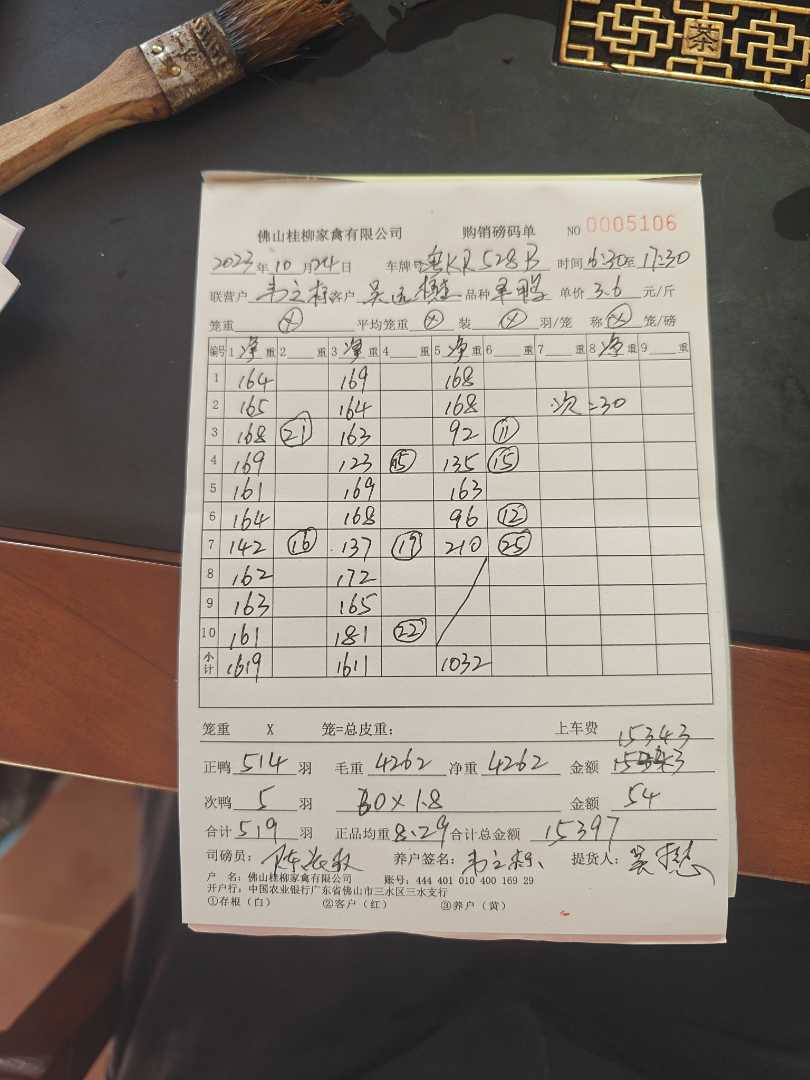 茶
佛山桂柳家禽有限公司 购销磅码单 NO 0005106
2023年10月24日 车牌号粤KR528B 时间6:30至17:30
联营户 韦立 客户 吴 品种 单价3.6元/斤
笼重 平均笼重 装 羽/笼 称 笼/磅
编号 1净重 2重 3净重 4重 5净重 6重 7重 8净重 9重
1 164 169 168
2 165 164 168 次=30
3 168 21 163 92 11
4 169 123 15 135 15
5 161 169 163
6 164 168 96 12
7 142 16 137 19 210 25
8 162 172
9 163 165
10 161 181 22
小计 1619 1611 1032
笼重 X 笼=总皮重： 上车费 15343
正鸭514羽 毛重4262 净重4262 金额
次鸭5羽 30×1.8 金额54
合计519羽 正品均重8.29 合计总金额15397
司磅员： 养户签名：韦立 提货人：吴
户 名：佛山桂柳家禽有限公司 账号：444 401 010 400 169 29
开户行：中国农业银行广东省佛山市三水区三水支行
①存根（白） ②客户（红） ③养户（黄）